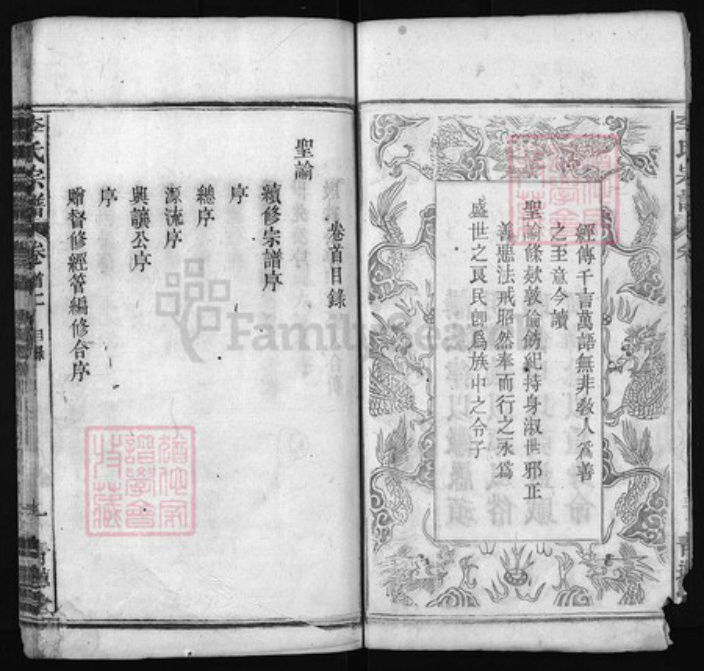 經傳千言萬語無非教人爲善
之至意今讀
聖諭條欵敦倫飭紀持身淑世邪正
善惡法戒昭然奉而行之永爲
盛世之良民卽爲族中之令子
卷首目錄
聖諭
續修宗譜序
序
總序
源流序
興讓公序
序
贈督修經管編修合序
李氏宗譜
卷首上
目錄
FamilySearch